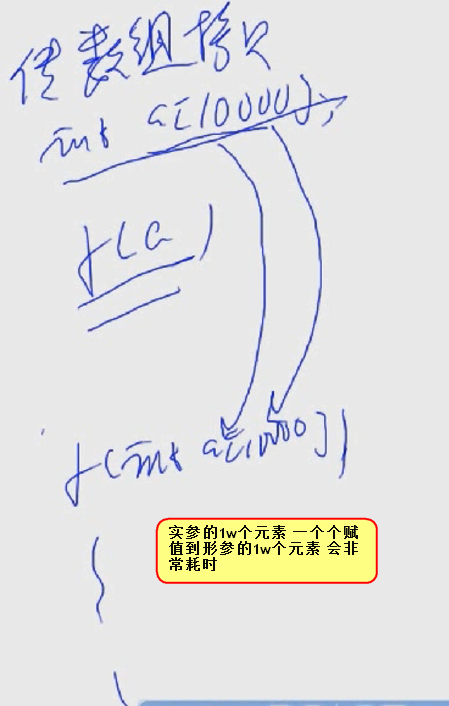 传数组拷贝
int a[10000];
f(a)
f(int a[10000])
{
实参的1w个元素 一个个赋
值到形参的1w个元素 会非
常耗时